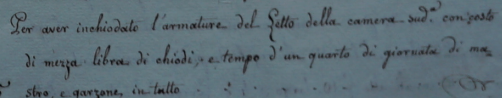 Per aver inchiodato l'armature del Getto della camera sud.ª con costo
di mezza libra di chiodi, e tempo d'un quarto di giornata di ma=
stro, e garzone, in tutto